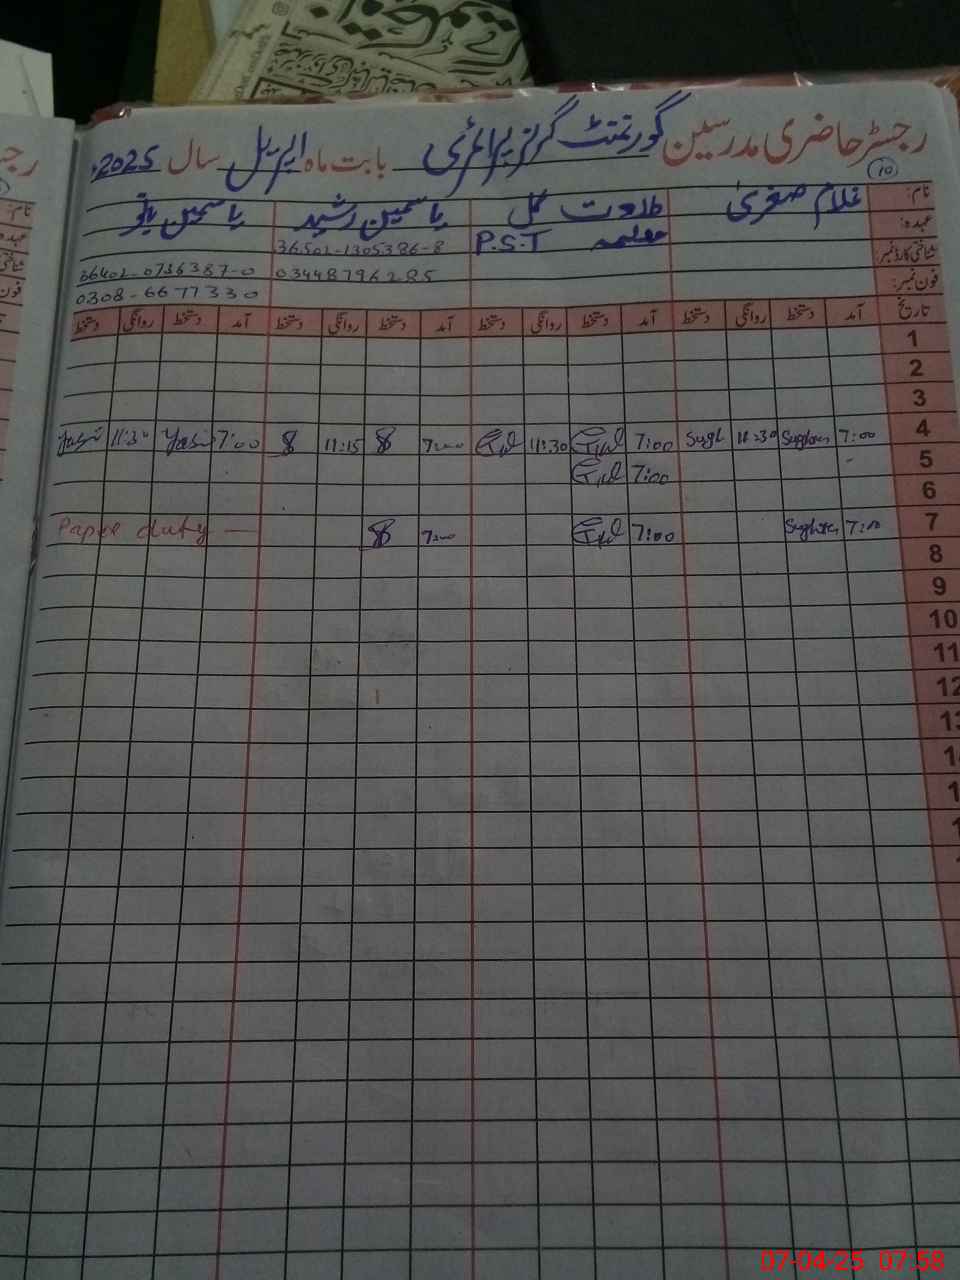 رجسٹر حاضری مدرسین گورنمنٹ گرلز پرائمری بابت ماہ اپریل سال 2025
10
نام: غلام صغریٰ طلعت گل یاسمین رشید یاسمین بانو
عہدہ: معلمہ P.S.T
شناختی کارڈ نمبر: 36502-1305386-8 36402-0736387-0
فون نمبر: 03448796285 0308-6677330
تاریخ آمد دستخط روانگی دستخط آمد دستخط روانگی دستخط آمد دستخط روانگی دستخط آمد دستخط روانگی دستخط
1
2
3
4 7:00 11:30 7:00 11:30 7:00 11:15 7:00 Yasi 11:30 Yasi
5 7:00
6
7 7:00 7:00 7:00 Paper duty —
8
9
10
11
12
07-04-25 07:58